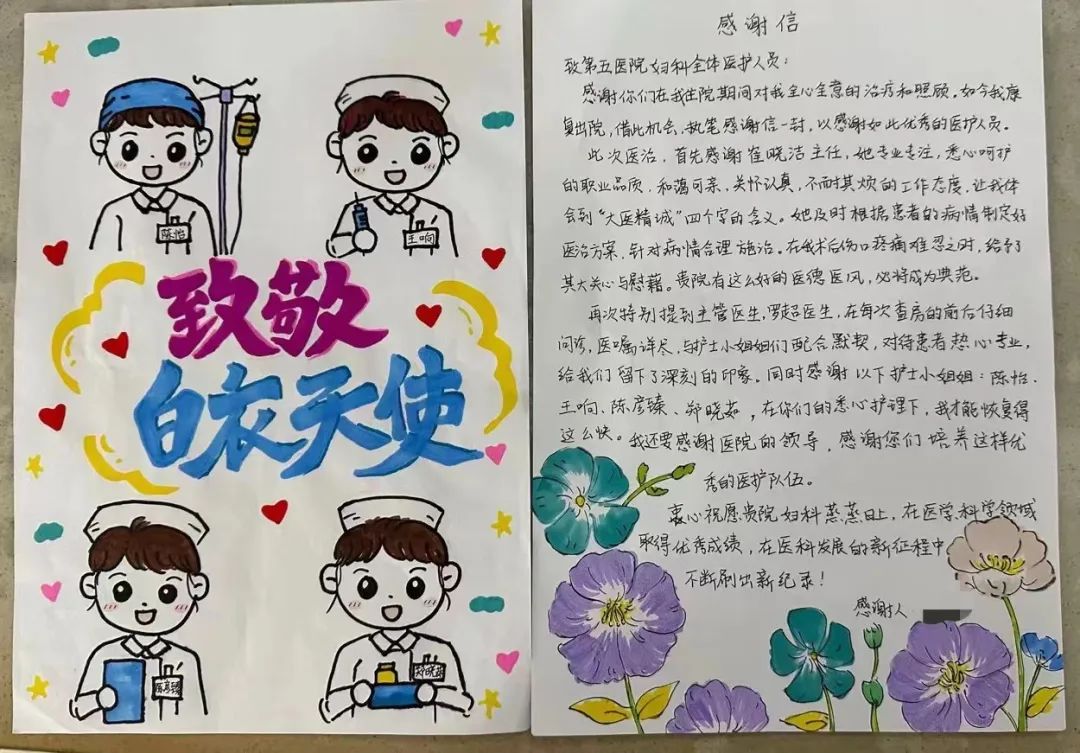 陈怡
王响
致敬
白衣天使
感谢信
致第五医院妇科全体医护人员：
感谢你们在我住院期间对我全心全意的治疗和照顾。如今我康
复出院，借此机会，执笔感谢信一封，以感谢如此优秀的医护人员。
此次医治，首先感谢崔晓洁主任，她专业专注，悉心呵护
的职业品质，和蔼可亲，关怀认真，不耐其烦的工作态度，让我体
会到“大医精诚”四个字的含义。她及时根据患者的病情制定好
医治方案，针对病情合理施治。在我术后伤口疼痛难忍之时，给予了
莫大关心与慰藉。贵院有这么好的医德医风，必将成为典范。
再次特别提到主管医生，罗超医生，在每次查房的前后仔细
问诊，医嘱详尽，与护士小姐姐们配合默契，对待患者热心专业，
给我们留下了深刻的印象。同时感谢以下护士小姐姐：陈怡、
王响、陈彦臻、郑晓茹，在你们的悉心护理下，我才能恢复得
这么快。我还要感谢医院的领导，感谢您们培养这样优
秀的医护队伍。
衷心祝愿贵院妇科蒸蒸日上，在医学科学领域
取得优秀成绩，在医科发展的新征程中
不断刷出新纪录！
感谢人